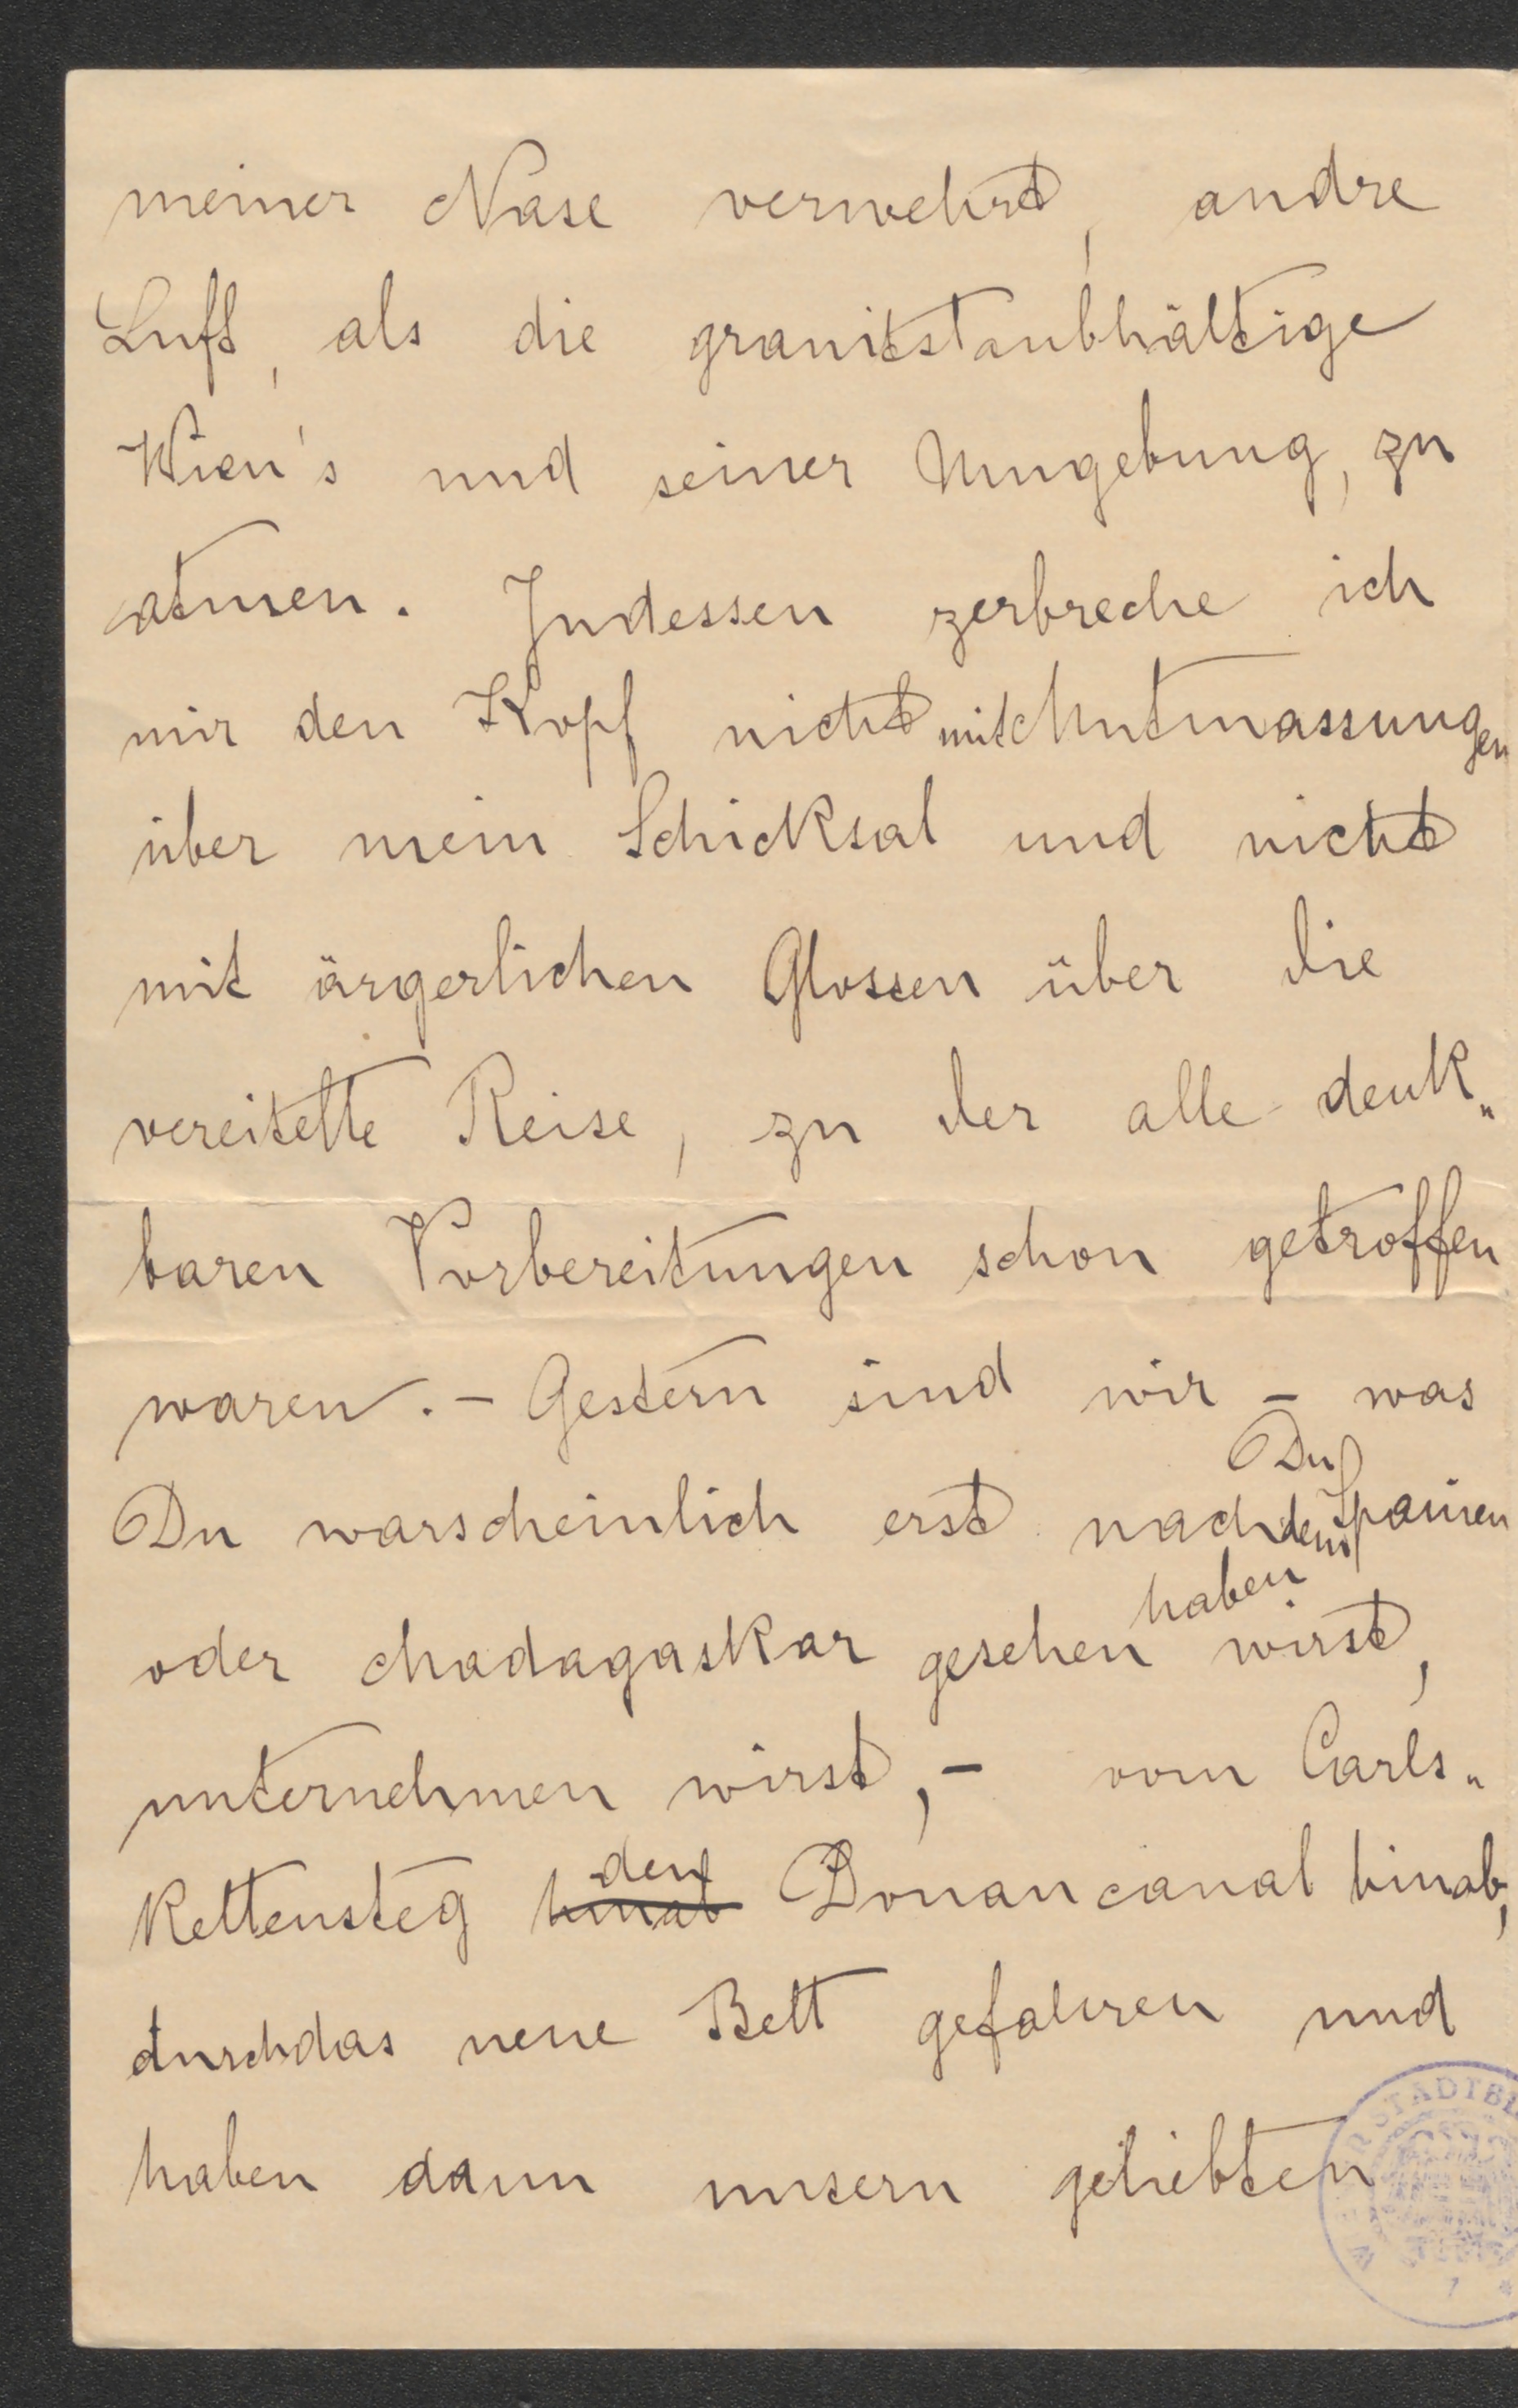 meiner Nase verwehrt, andre
Luft, als die granitstaubhältige
Wien's und seiner Umgebung, zu
atmen. Indessen zerbreche ich
mir den Kopf nicht mit Mutmassungen
über mein Schicksal und nicht
mit ärgerlichen Glossen über die
vereitelte Reise, zu der alle denk„
baren Vorbereitungen schon getroffen
waren. – Gestern sind wir – was
Du warscheinlich erst nachdem Du Spanien
oder Madagaskar gesehen haben wirst,
unternehmen wirst, – vom Carls„
Kettensteg hinab den Donaucanal hinab,
durch das neue Bett gefahren und
haben dann unsern geliebten
STADTBI